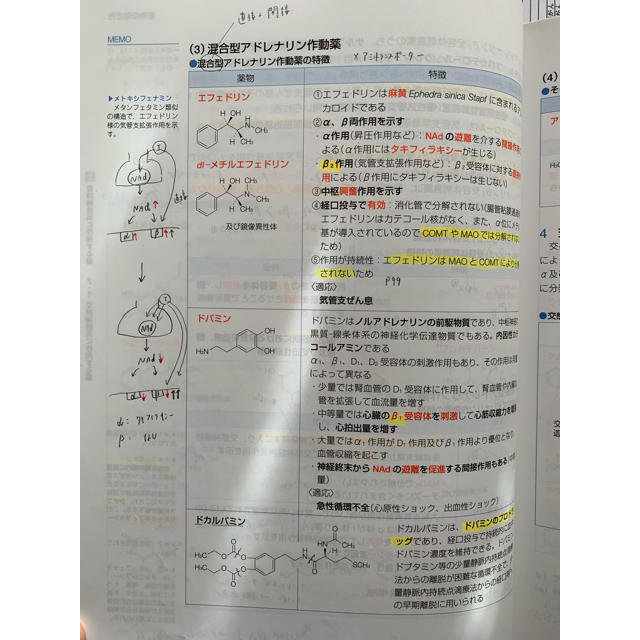 直接+間接
MEMO
(3) 混合型アドレナリン作動薬
●混合型アドレナリン作動薬の特徴
薬物
特徴
▶メトキシフェナミン
メタンフェタミン類似
の構造で、エフェドリン
様の気管支拡張作用を示
す。
エフェドリン
①エフェドリンは麻黄 Ephedra sinica Stapf に含まれる
カロイドである
②α、β両作用を示す
・α作用(昇圧作用など):NAdの遊離を介する間接作用
による(α作用にはタキフィラキシーが生じる)
・β₂作用(気管支拡張作用など):β₂受容体に対する
用による(β作用にはタキフィラキシーは生じない)
③中枢興奮作用を示す
④経口投与で有効:消化管で分解されない(腸管粘膜通過
エフェドリンはカテコール核がなく、また、α位にメチ
基が導入されているので COMT や MAO では分解されない
ため)
⑤作用が持続性:エフェドリンは MAO と COMT により分
されないため
〈適応〉
気管支ぜん息
dl-メチルエフェドリン
及び鏡像異性体
H OH
CH₃
NAd
NAd↑
α↑
β↑↑
直接
NAd
NAd↓
ドパミン
OH
OH
H₂N
ドパミンはノルアドレナリンの前駆物質であり、中枢神経
黒質-線条体系の神経化学伝達物質でもある。内因性カ
コールアミンである
α₁、β₁、D₁、D₂ 受容体の刺激作用もあり、その作用は用量
によって異なる
・少量では腎血管の D₁ 受容体に作用して、腎血管や内臓
管を拡張して血流量を増す
・中等量では心臓のβ₁受容体を刺激して心筋収縮力を増強
し、心拍出量を増す
・大量では α₁ 作用が D₁ 作用及び β₁ 作用より優位となり、
血管収縮を起こす
・神経終末から NAd の遊離を促進する間接作用もある
量)
〈適応〉
急性循環不全(心原性ショック、出血性ショック)
ドカルパミン
ドカルパミンは、ドパミンのプロドラ
ッグであり、経口投与で持続的に
ドパミン濃度を維持できる。ドパミン
ドブタミン等の少量静脈内持続点滴
法からの離脱が困難な循環不全で、
量静脈内持続点滴療法からの経口
の早期離脱に用いられる
(4)
●そ
4
α及
に分
●交感